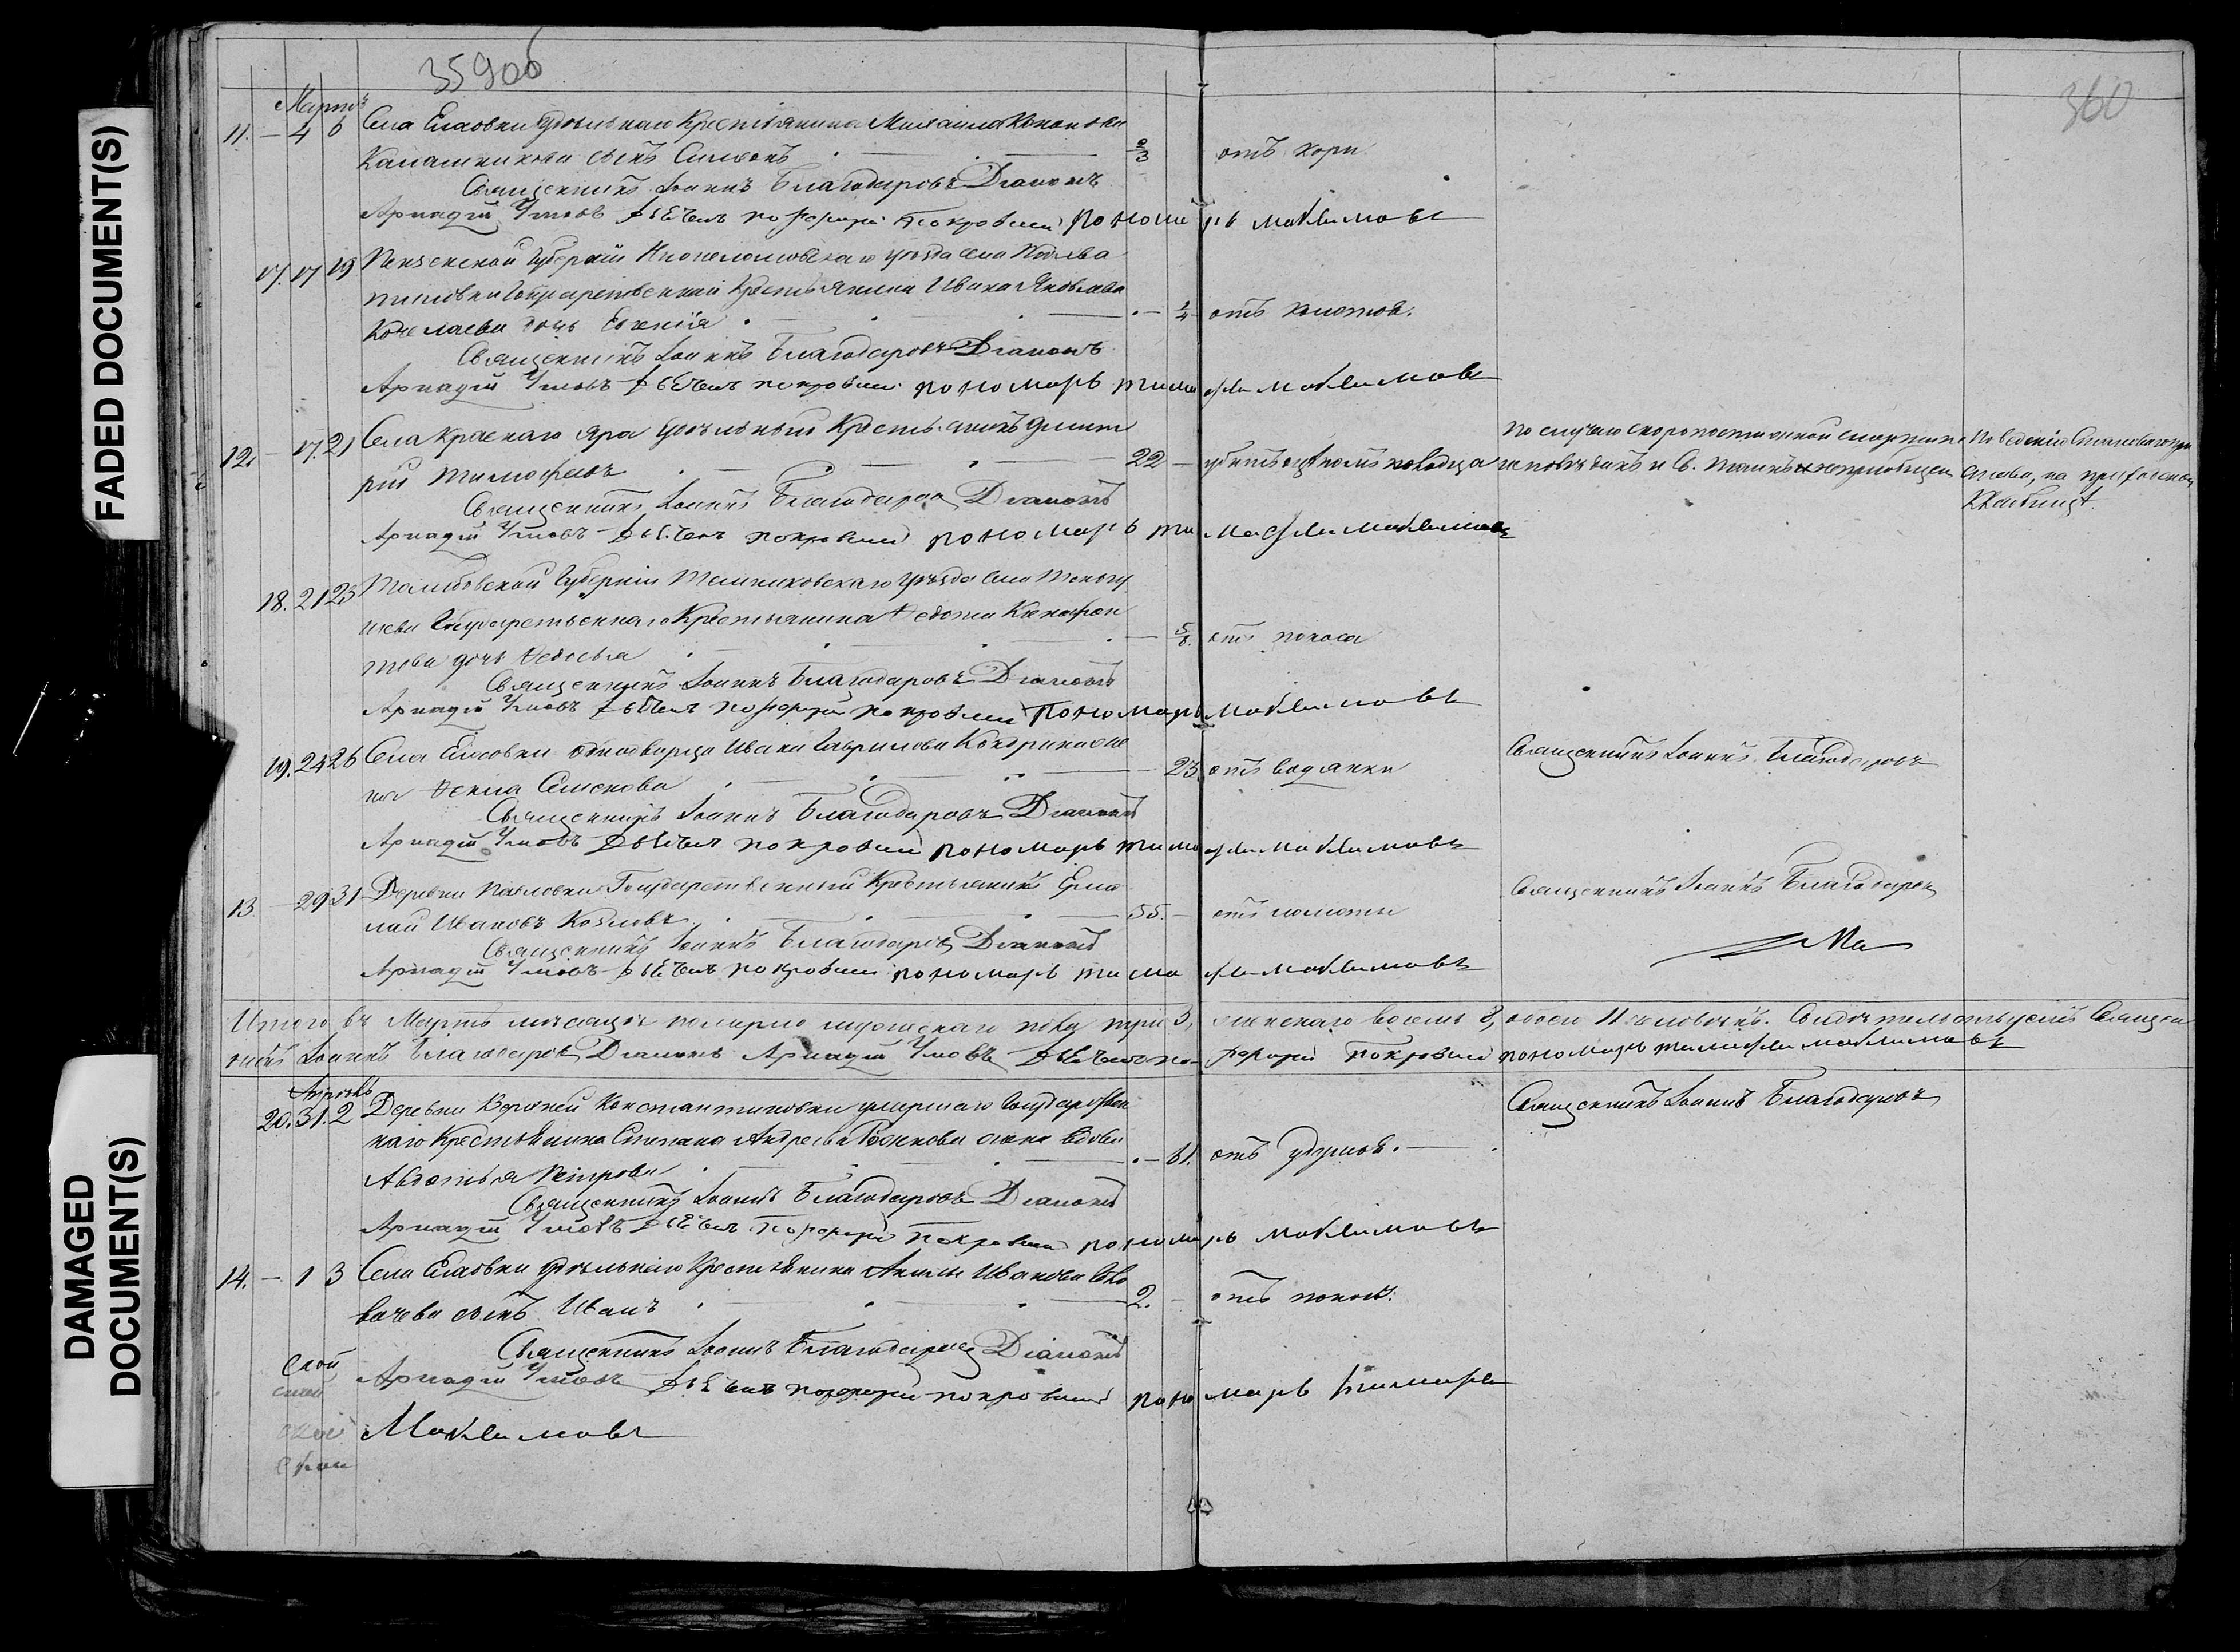 FADED DOCUMENT(S)
DAMAGED
DOCUMENT(S)
359об
360
Мартъ
11. - 4 6 Села Еласовки удѣльнаго Крестьянина Михаила
Калашникова сынъ Симеонъ 2/3 отъ кори
Священникъ Іоаннъ Благодаровъ Діаконъ
Аркадій Умовъ Дьячекъ Порфирій Покровскій пономарь Максимовъ
17. 17 19 Пензенской Губерніи уѣзда села
Государственнаго Крестьянина Ивана Яковлева
дочь Евгенія 1/4 отъ
Священникъ Іоаннъ Благодаровъ Діаконъ
Аркадій Умовъ Дьячекъ Покровскій пономарь тимофеи Максимовъ
12. - 17. 21 Села Краснаго Яра удѣльный Крестьянинъ Димит
рій Тимофеевъ 22 - убитъ
По случаю скоропостижной смерти не
исповѣданъ и Св. Таинъ не пріобщен
по
на приходскомъ
Кладбищѣ.
Священникъ Іоаннъ Благодаровъ Діаконъ
Аркадій Умовъ Дьячекъ Покровскій пономарь тимофеи Максимовъ
18. 21 23 Тамбовской Губерніи Темниковскаго уѣзда села
шева Государственнаго Крестьянина Федота Ксенофон
това дочь Федосья 5/8. отъ поноса
Священникъ Іоаннъ Благодаровъ Діаконъ
Аркадій Умовъ Дьячекъ Порфирій Покровскій Пономарь Максимовъ
19. 24 26 Села Еласовки однодворца Ивана Гаврилова Кондрашина же
на Фекла Семенова 23. отъ водянки
Священникъ Іоаннъ Благодаровъ
Священникъ Іоаннъ Благодаровъ Діаконъ
Аркадій Умовъ Дьячекъ Покровскій пономарь тимофеи Максимовъ
13. - 29 31 Деревни Павловки Государственный Крестьянинъ Ермо
лай Ивановъ Козловъ 55. - отъ ломоты
Священникъ Іоаннъ Благодаровъ
Священникъ Іоаннъ Благодаровъ Діаконъ
Аркадій Умовъ Дьячекъ Покровскій пономарь тимофеи Максимовъ
Итого въ Мартѣ мѣсяцѣ померло мужескаго полу три 3, женскаго восемь 8, обоего 11 человѣкъ. Свидѣтельствуемъ Священ
никъ Іоаннъ Благодаровъ Діаконъ Аркадій Умовъ Дьячекъ Порфирій Покровскій пономарь тимофеи Максимовъ
Апрѣль
20. 31. 2 Деревни Верхней Константиновки умершаго Государствен
наго Крестьянина Степана Андреева жена вдова
Авдотья Петрова 61. отъ удушья.
Священникъ Іоаннъ Благодаровъ
Священникъ Іоаннъ Благодаровъ Діаконъ
Аркадій Умовъ Дьячекъ Порфирій Покровскій пономарь Максимовъ
14. - 1 3 Села Еласовки удѣльнаго Крестьянина Иванова
сынъ Иванъ 2. - отъ поноса.
Священникъ Іоаннъ Благодаровъ Діаконъ
Аркадій Умовъ Дьячекъ Порфирій Покровскій пономарь тимофеи
Максимовъ